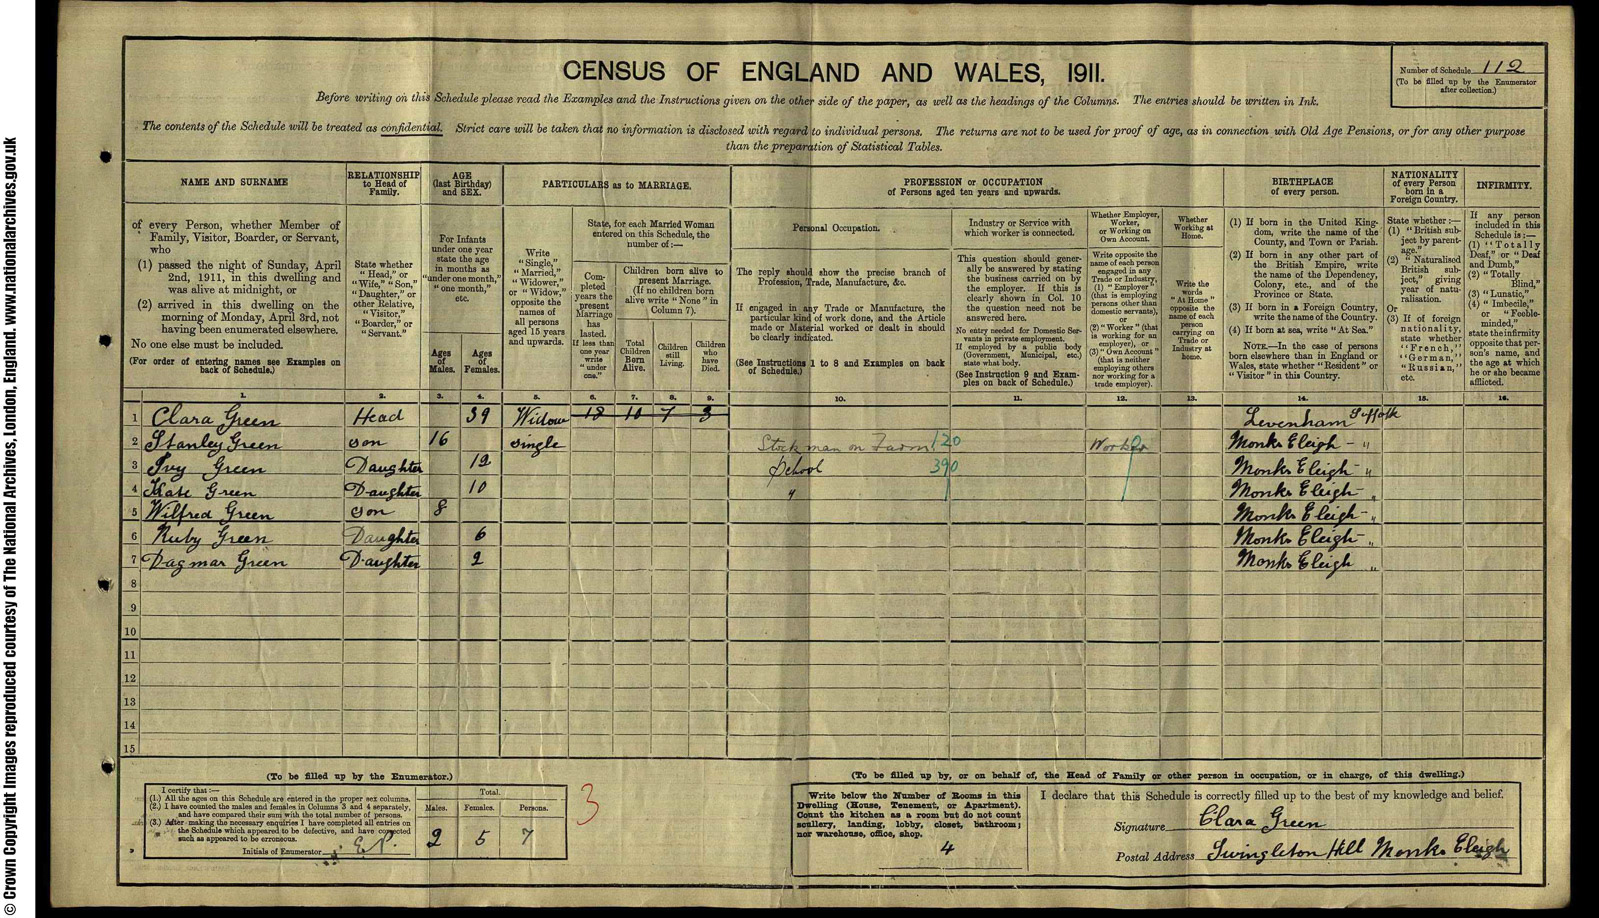 © Crown Copyright Images reproduced courtesy of The National Archives, London, England. www.nationalarchives.gov.uk
CENSUS OF ENGLAND AND WALES, 1911.
Number of Schedule 112
(To be filled up by the Enumerator after collection.)
Before writing on this Schedule please read the Examples and the Instructions given on the other side of the paper, as well as the headings of the Columns. The entries should be written in Ink.
The contents of the Schedule will be treated as confidential. Strict care will be taken that no information is disclosed with regard to individual persons. The returns are not to be used for proof of age, as in connection with Old Age Pensions, or for any other purpose
than the preparation of Statistical Tables.
NAME AND SURNAME
of every Person, whether Member of
Family, Visitor, Boarder, or Servant,
who
(1) passed the night of Sunday, April
2nd, 1911, in this dwelling and
was alive at midnight, or
(2) arrived in this dwelling on the
morning of Monday, April 3rd, not
having been enumerated elsewhere.
No one else must be included.
(For order of entering names see Examples on
back of Schedule.)
RELATIONSHIP
to Head of
Family.
State whether
"Head," or
"Wife," "Son,"
"Daughter," or
other Relative,
"Visitor,"
"Boarder," or
"Servant."
AGE
(last Birthday)
and SEX.
For Infants
under one year
state the age
in months as
"under one month,"
"one month,"
etc.
Ages
of
Males.
Ages
of
Females.
PARTICULARS as to MARRIAGE.
Write
"Single,"
"Married,"
"Widower,"
or "Widow,"
opposite the
names of
all persons
aged 15 years
and upwards.
State, for each Married Woman
entered on this Schedule, the
number of:—
Completed
years the
present
Marriage
has
lasted.
If less than
one year
write
"under
one."
Children born alive to
present Marriage.
(If no children born
alive write "None" in
Column 7).
Total
Children
Born
Alive.
Children
still
Living.
Children
who
have
Died.
PROFESSION or OCCUPATION
of Persons aged ten years and upwards.
Personal Occupation.
The reply should show the precise branch of
Profession, Trade, Manufacture, &c.
If engaged in any Trade or Manufacture, the
particular kind of work done, and the Article
made or Material worked or dealt in should
be clearly indicated.
(See Instructions 1 to 8 and Examples on back
of Schedule.)
Industry or Service with
which worker is connected.
This question should gener-
ally be answered by stating
the business carried on by
the employer. If this is
clearly shown in Col. 10
the question need not be
answered here.
No entry needed for Domestic Ser-
vants in private employment.
If employed by a public body
(Government, Municipal, etc.)
state what body.
(See Instruction 9 and Exam-
ples on back of Schedule.)
Whether Employer,
Worker,
or Working on
Own Account.
Write opposite the
name of each person
engaged in any
Trade or Industry,
(1) "Employer"
(that is employing
persons other than
domestic servants),
or
(2) "Worker" (that
is working for an
employer), or
(3) "Own Account"
(that is neither
employing others
nor working for a
trade employer).
Whether
Working at
Home.
Write the
words
"At Home"
opposite the
name of each
person
carrying on
Trade or
Industry at
home.
BIRTHPLACE
of every person.
(1) If born in the United King-
dom, write the name of the
County, and Town or Parish.
(2) If born in any other part of
the British Empire, write
the name of the Dependency,
Colony, etc., and of the
Province or State.
(3) If born in a Foreign Country,
write the name of the Country.
(4) If born at sea, write "At Sea."
NOTE.—In the case of persons
born elsewhere than in England or
Wales, state whether "Resident" or
"Visitor" in this Country.
NATIONALITY
of every Person
born in a
Foreign Country.
State whether:—
(1) "British sub-
ject by parent-
age,"
(2) "Naturalised
British sub-
ject," giving
year of natu-
ralisation.
Or
(3) If of foreign
nationality,
state whether
"French,"
"German,"
"Russian,"
etc.
INFIRMITY.
If any person
included in this
Schedule is:—
(1) "Totally
Deaf," or "Deaf
and Dumb,"
(2) "Totally
Blind,"
(3) "Lunatic,"
(4) "Imbecile,"
or "Feeble-
minded,"
state the infirmity
opposite that per-
son's name, and
the age at which
he or she became
afflicted.
1. 2. 3. 4. 5. 6. 7. 8. 9. 10. 11. 12. 13. 14. 15. 16.
1 Clara Green Head 39 Widow 18 10 7 3 Levenham Suffolk
2 Stanley Green son 16 single Stockman on Farm 120 Worker Monks Eleigh - "
3 Ivy Green Daughter 12 School 390 Monks Eleigh - "
4 Kate Green Daughter 10 " Monks Eleigh - "
5 Wilfred Green son 8 Monks Eleigh - "
6 Ruby Green Daughter 6 Monks Eleigh - "
7 Dagmar Green Daughter 2 Monks Eleigh "
8
9
10
11
12
13
14
15
(To be filled up by the Enumerator.)
I certify that:—
(1.) All the ages on this Schedule are entered in the proper sex columns.
(2.) I have counted the males and females in Columns 3 and 4 separately,
and have compared their sum with the total number of persons.
(3.) After making the necessary enquiries I have completed all entries on
the Schedule which appeared to be defective, and have corrected
such as appeared to be erroneous.
Initials of Enumerator E.P.
Total.
Males. Females. Persons.
2 5 7
3
(To be filled up by, or on behalf of, the Head of Family or other person in occupation, or in charge, of this dwelling.)
Write below the Number of Rooms in this
Dwelling (House, Tenement, or Apartment).
Count the kitchen as a room but do not count
scullery, landing, lobby, closet, bathroom;
nor warehouse, office, shop.
4
I declare that this Schedule is correctly filled up to the best of my knowledge and belief.
Signature Clara Green
Postal Address Swingleton Hill Monks Eleigh